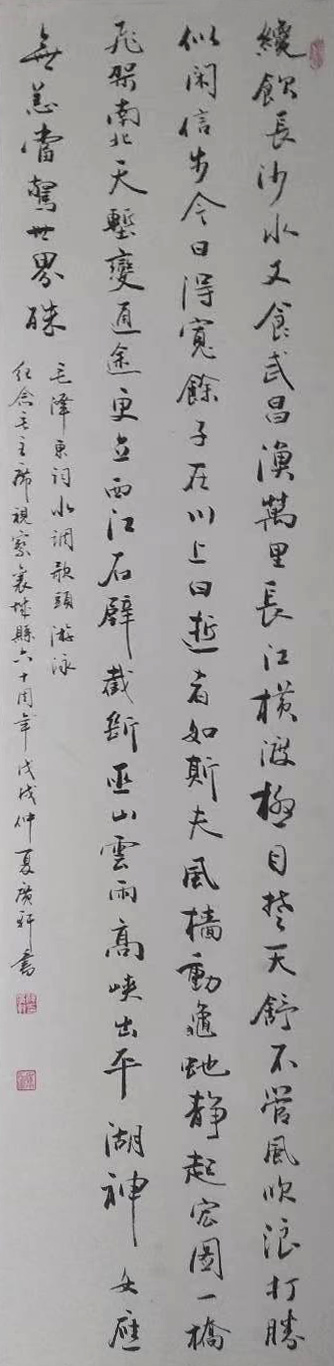 纔飲長沙水又食武昌漁萬里長江橫渡極目楚天舒不管風吹浪打勝
似閑信步今日得寬餘子在川上曰逝者如斯夫風檣動龜蛇靜起宏圖一橋
飛架南北天塹變通途更立西江石壁截斷巫山雲雨高峽出平湖神女應
無恙當驚世界殊
毛澤東詞水調歌頭游泳
紀念毛主席視察襄城縣六十周年戊戌仲夏廣書